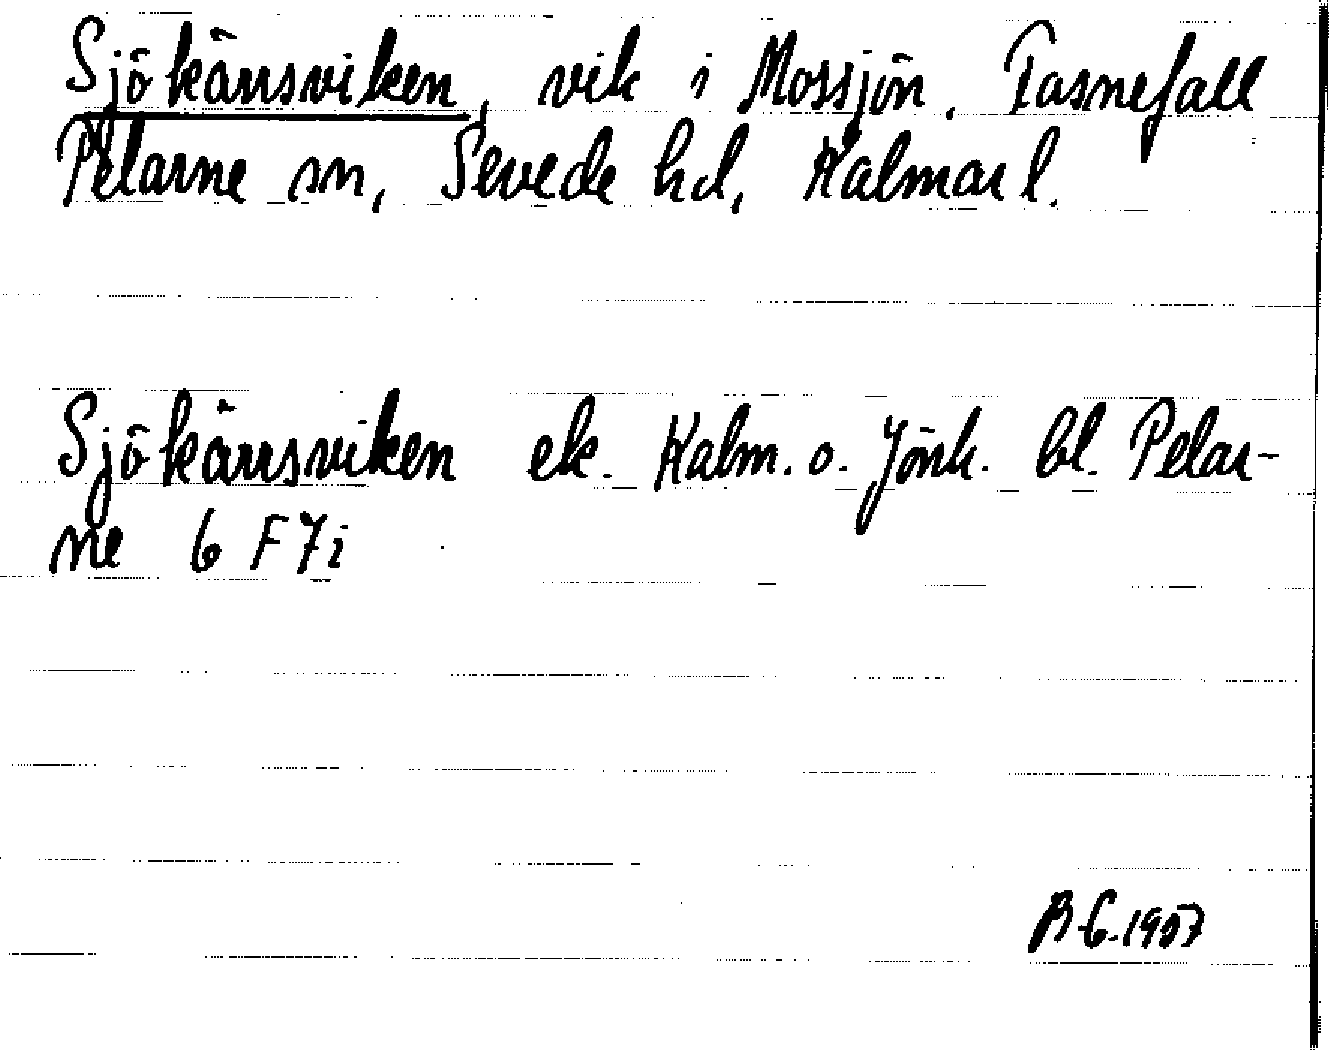 Sjökärrsviken, vik i Mossjön. Tasnefall
Pelarne sn, Sevede hd, Kalmar l.
Sjökärrsviken ek. Kalm. o. Jönk. bl. Pelar-
ne 6 F 7i
B G. 1957